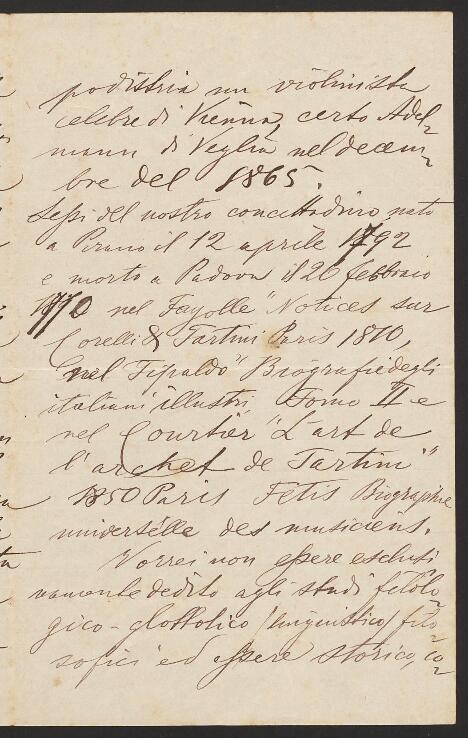 podistria un violinista
celebre di Vienna, certo Adel=
mann di Veglia nel decem=
bre del 1865.
Lessi del nostro concittadino nato
a Pirano il 12 aprile 1792
e morto a Padova il 26 febbraio
1770 nel Fayolle "Notices sur
Corelli & Tartini Paris 1810,
nel Tipaldo" Biografie degli
italiani illustri Tomo II e
nel Courtier "L'art de
l'archet de Tartini"
1850 Paris Fetis Biographie
universelle des musiciens.
Vorrei non essere esclusi
vamente dedito agli studi filolo=
gico-glottolico (linguistico) filo=
sofici ed essere storico, co=